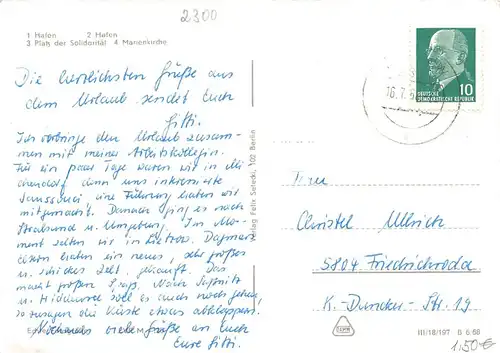 2300
1 Hafen 2 Hafen
3 Platz der Solidarität 4 Marienkirche
Die herzlichsten Grüße aus
dem Urlaub sendet Euch
Gitti.
Ich verbringe den Urlaub zusam-
men mit meiner Arbeitskollegin.
Für ein paar Tage waren wir in
denn uns interessierte
Sanssouci eine Führung haben wir
mitgemacht. Danach ging es nach
Stralsund u. Umgebung. Im Mo-
ment zelten wir in Dagmars
Eltern haben ein neues, sehr großes
u. schickes Zelt, gekauft. Das
macht großen Spaß. Nach Saßnitz
u. Hiddensee soll es auch noch gehen,
so zusagen die Küste etwas abklappern.
Nochmals viele Grüße an Euch
Eure Gitti.
Verlag Felix Setecki, 102 Berlin
16.7.
DEUTSCHE
DEMOKRATISCHE REPUBLIK
10
Frau
Christel Ullrich
5804 Friedrichroda
K.-Duncker-Str. 19
III/18/197 G 6/68
1,50€